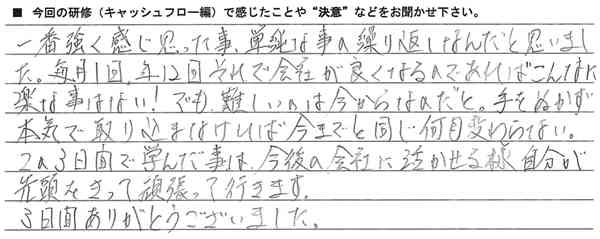 ■ 今回の研修（キャッシュフロー編）で感じたことや“決意”などをお聞かせ下さい。
一番強く感じ思った事、単純な事の繰り返しなんだと思いまし
た。毎月1回、年12回それで会社が良くなるのであればこんなに
楽な事はない！でも、難しいのは今からなのだと。手をぬかず
本気で取り込まなければ今までと同じ何目変わらない。
この3日間で学んだ事は、今後の会社に活かせる様、自分が
先頭をきって頑張って行きます。
3日間ありがとうございました。